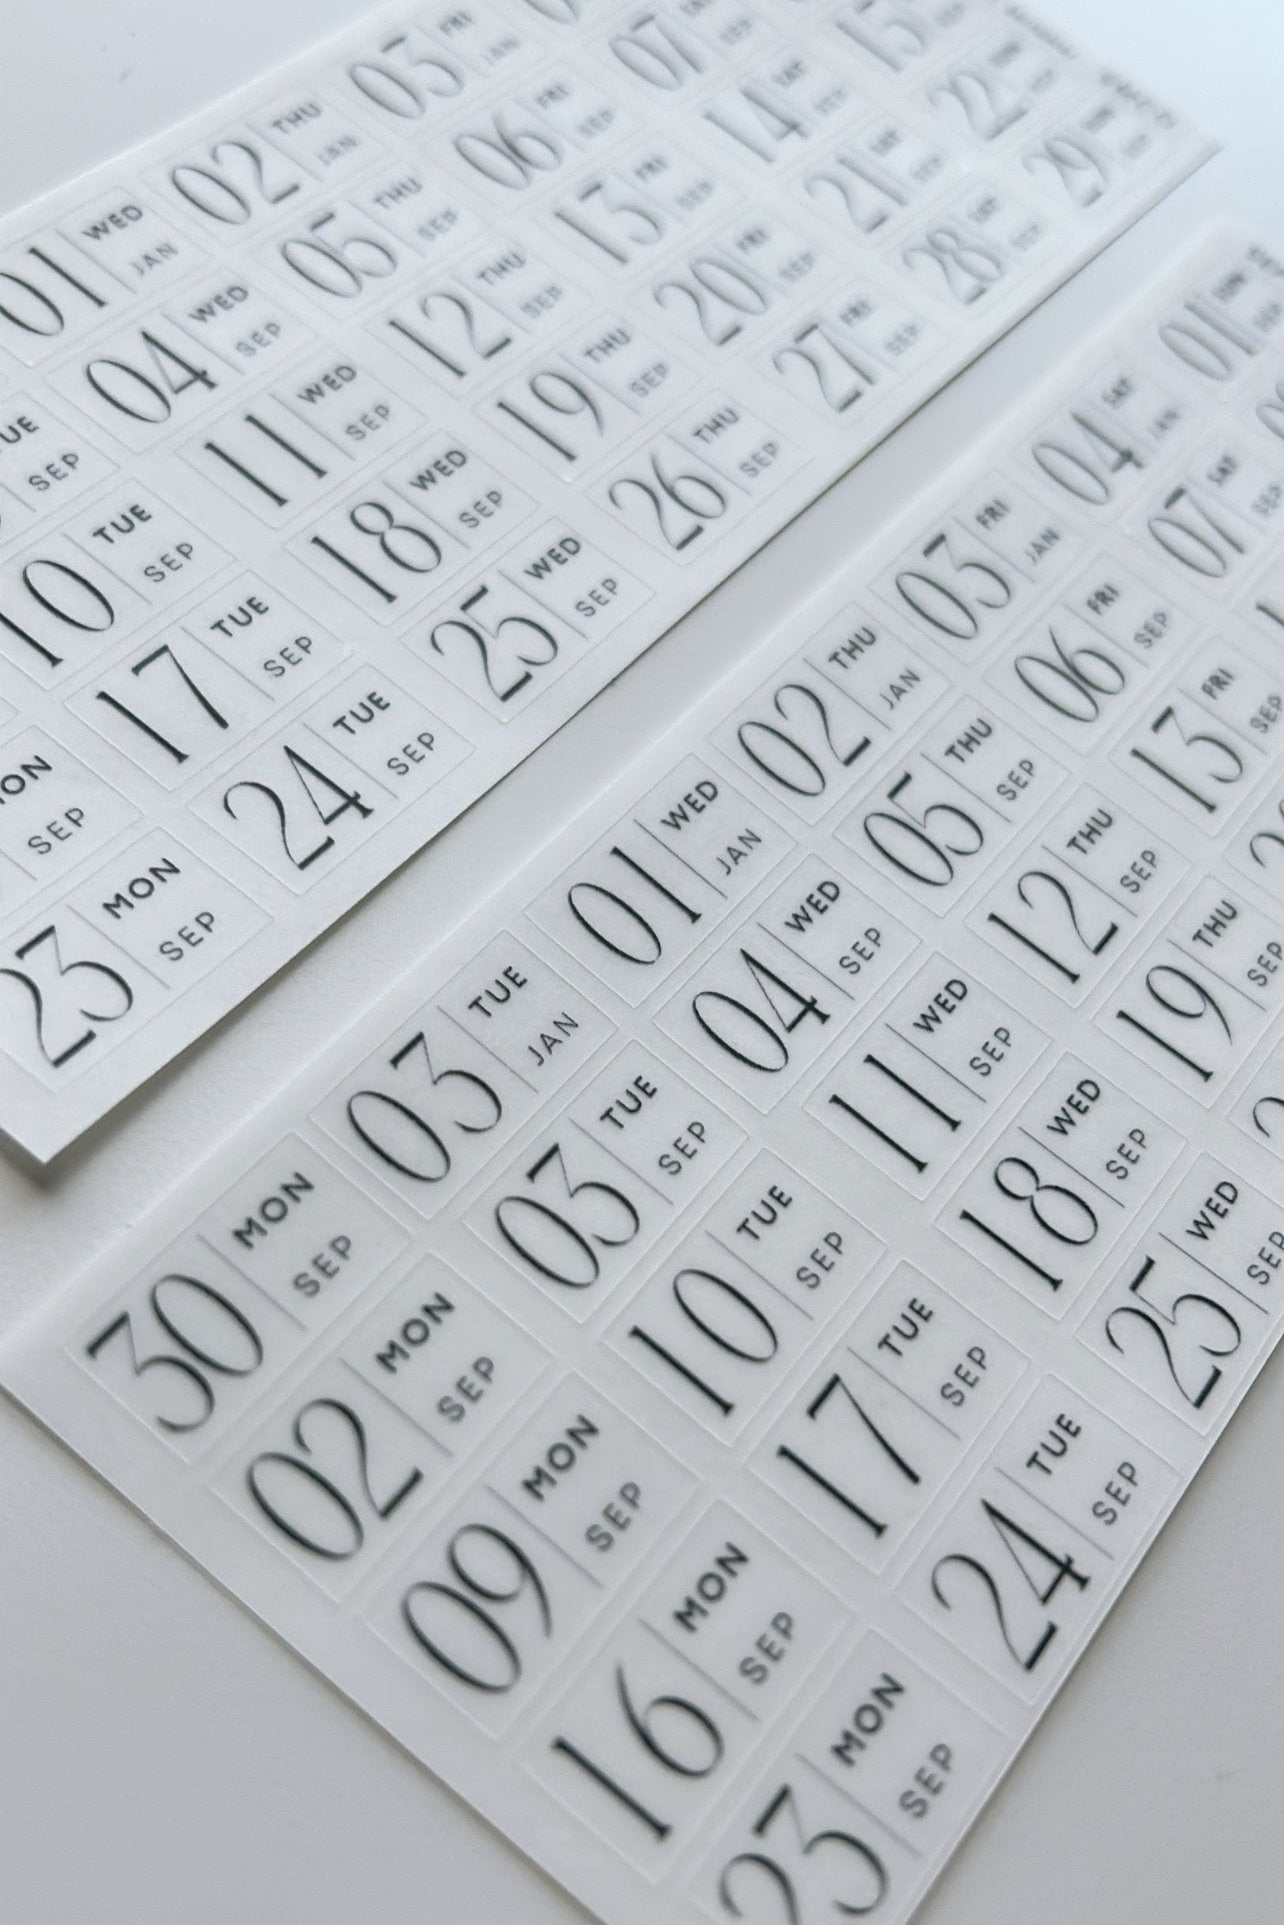 01 WED JAN
02 THU JAN
03 FRI JAN
SEP
04 WED SEP
05 THU SEP
06 FRI SEP
07 SEP
10 TUE SEP
11 WED SEP
12 THU SEP
13 FRI SEP
14 SAT SEP
15
SEP
17 TUE SEP
18 WED SEP
19 THU SEP
20 FRI SEP
21 SAT SEP
22
23 MON SEP
24 TUE SEP
25 WED SEP
26 THU SEP
27 FRI SEP
28 SAT SEP
29
30 MON SEP
03 TUE JAN
01 WED JAN
02 THU JAN
03 FRI JAN
04 SAT JAN
01 SUN
02 MON SEP
03 TUE SEP
04 WED SEP
05 THU SEP
06 FRI SEP
07 SAT SEP
09 MON SEP
10 TUE SEP
11 WED SEP
12 THU SEP
13 FRI SEP
16 MON SEP
17 TUE SEP
18 WED SEP
19 THU SEP
23 MON SEP
24 TUE SEP
25 WED SEP